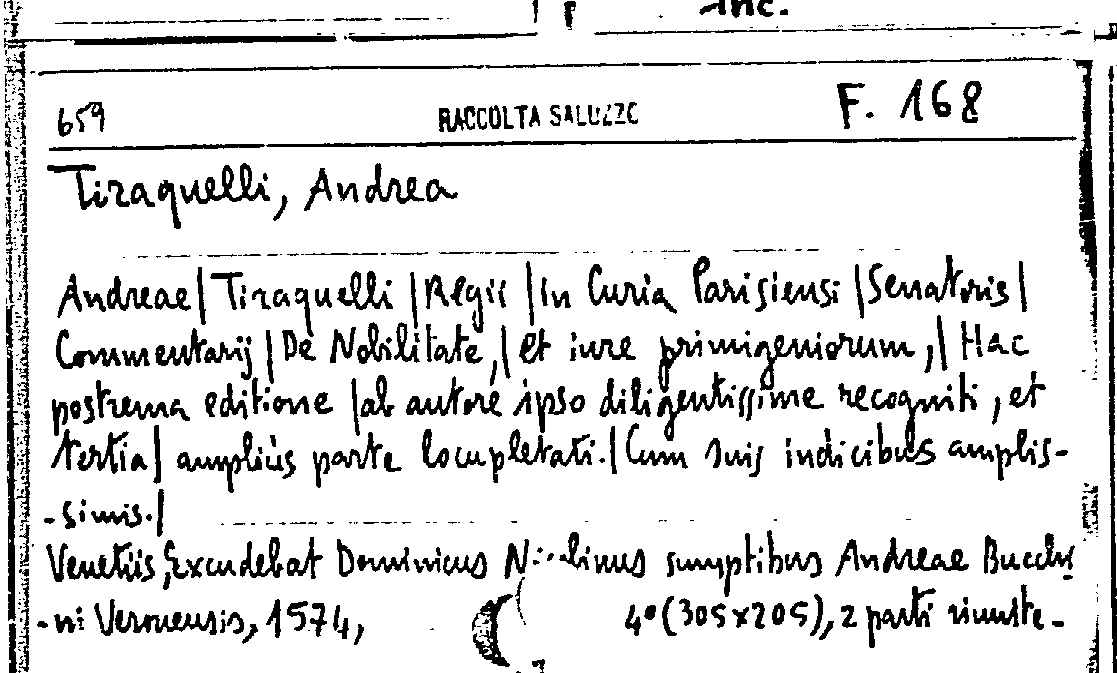 Inc.
659 RACCOLTA SALUZZO F. 168
Tiraquelli, Andrea
Andreae| Tiraquelli |Regii |in Curia Parisiensi |Senatoris|
Commentarij |De Nobilitate,| et iure primigeniorum,| Hac
postrema editione |ab autore ipso diligentissime recogniti, et
tertia| ampliùs parte locupletati.|Cum suis indicibus amplis-
-simis.|
Venetiis, Excudebat Dominicus sumptibus Andreae Bucchi
-ni Veronensis, 1574, 4° (305x205), 2 parti riunite-